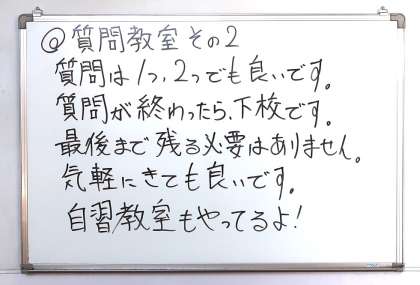 @質問教室その2
質問は1つ,2つでも良いです。
質問が終わったら、下校です。
最後まで残る必要はありません。
気軽にきても良いです。
自習教室もやってるよ!